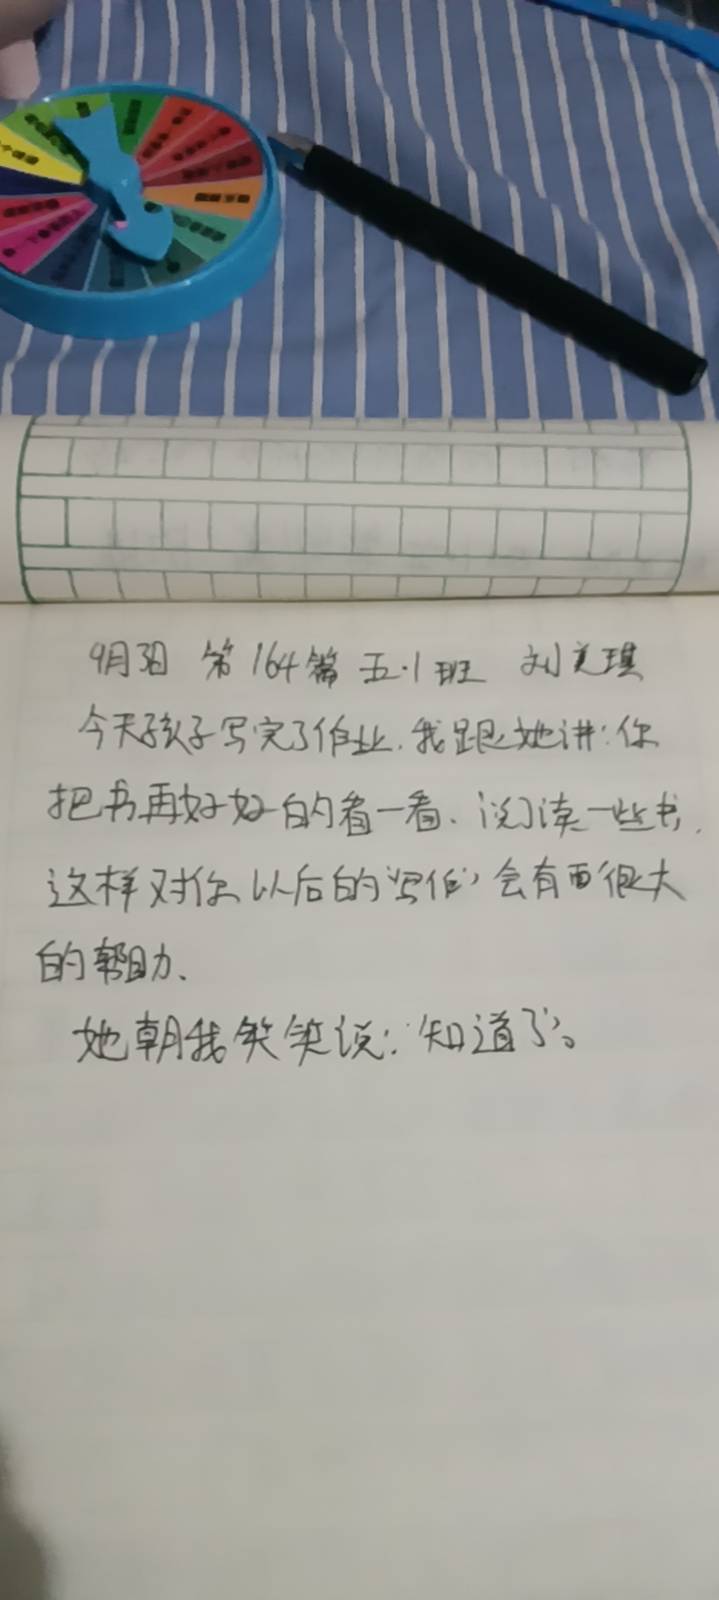 9月3日 第164篇 五.1班 刘美琪
今天孩子写完了作业.我跟她讲:你
把书再好好的看一看、阅读一些书.
这样对你以后的“写作”会有很大
的帮助、
她朝我笑笑说:“知道了”。